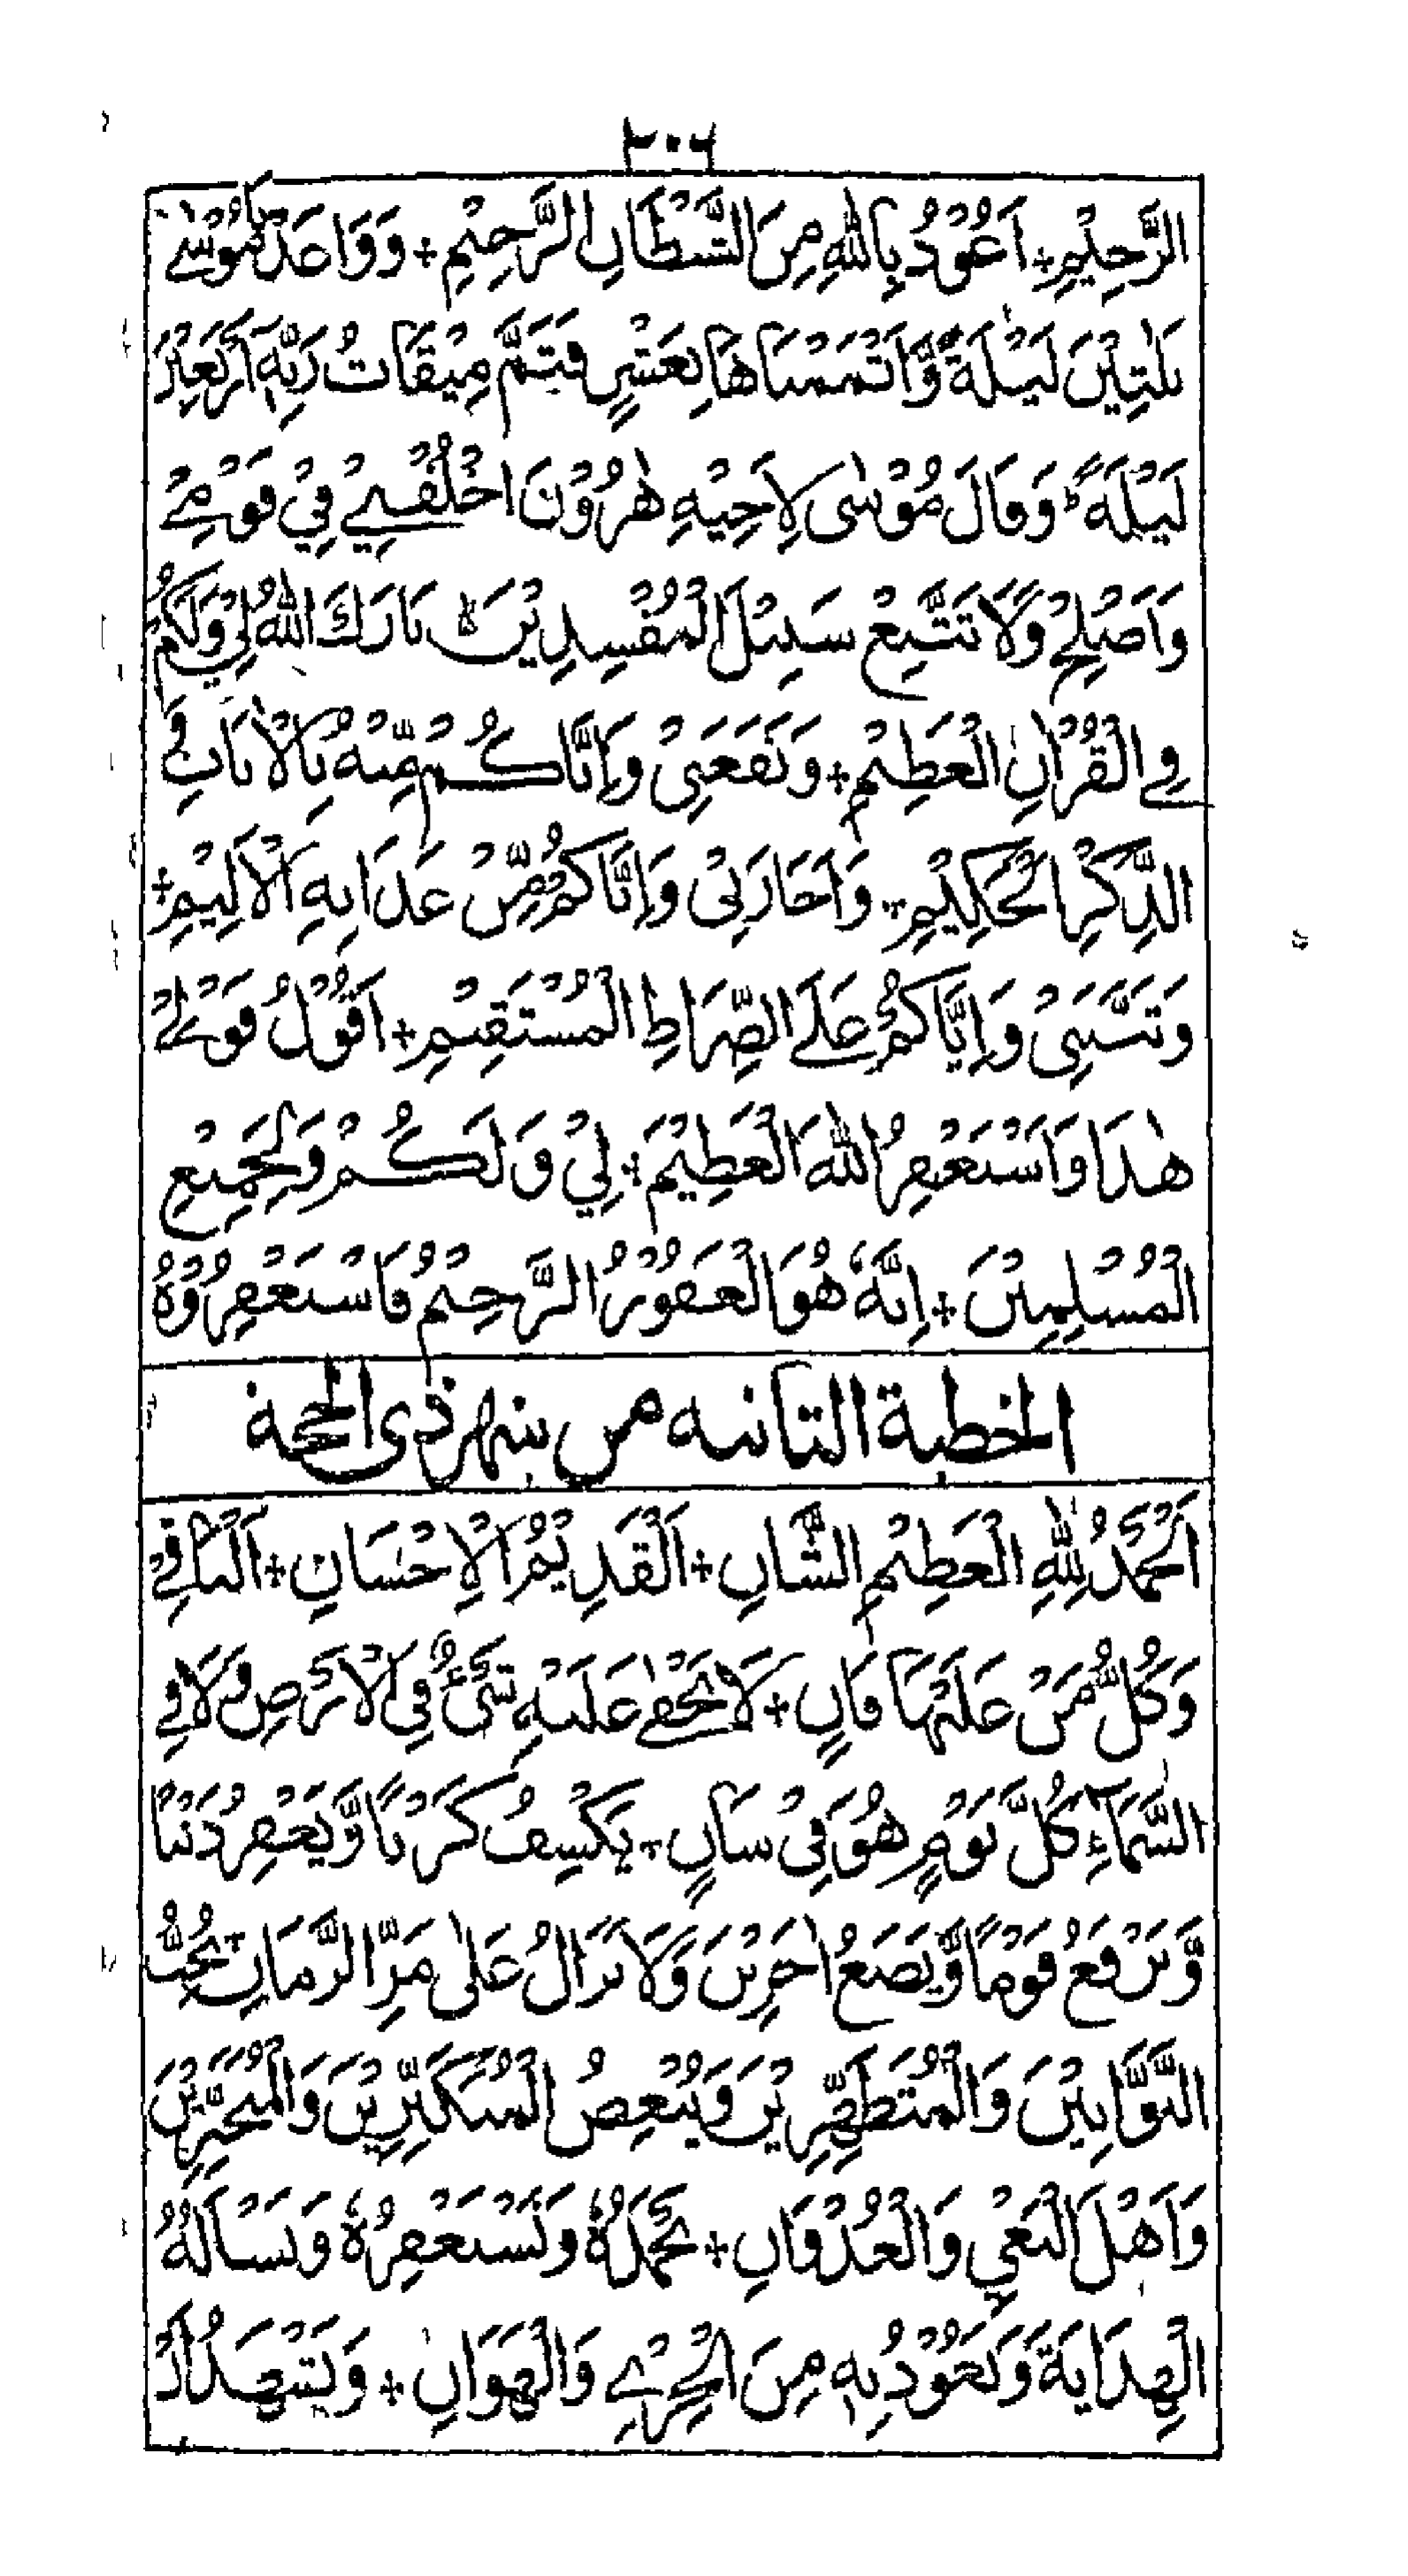 ٢٠٦
الرَّحِيْمِ + اَعُوْذُ بِاللّٰهِ مِنَ الشَّيْطَانِ الرَّجِيْمِ + وَوَاعَدْنَا مُوْسٰے
ثَلٰثِيْنَ لَيْلَةً وَّاَتْمَمْنَاهَا بِعَشْرٍ فَتَمَّ مِيْقَاتُ رَبِّهٖ اَرْبَعِيْنَ
لَيْلَةً ۚ وَقَالَ مُوْسٰى لِاَخِيْهِ هٰرُوْنَ اخْلُفْنِيْ فِيْ قَوْمِيْ
وَاَصْلِحْ وَلَا تَتَّبِعْ سَبِيْلَ الْمُفْسِدِيْنَ ۝ بَارَكَ اللّٰهُ لِيْ وَلَكُمْ
فِے الْقُرْاٰنِ الْعَظِيْمِ + وَنَفَعَنِىْ وَاِيَّاكُمْ مِّنْهُ بِالْاٰيَاتِ وَ
الذِّكْرِ الْحَكِيْمِ + وَاَجَارَنِىْ وَاِيَّاكُمْ مِّنْ عَذَابِهِ الْاَلِيْمِ +
وَثَبَّتَنِىْ وَاِيَّاكُمْ عَلَے الصِّرَاطِ الْمُسْتَقِيْمِ + اَقُوْلُ قَوْلِے
هٰذَا وَاَسْتَغْفِرُ اللّٰهَ الْعَظِيْمَ + لِيْ وَلَكُمْ وَلِجَمِيْعِ
الْمُسْلِمِيْنَ + اِنَّهٗ هُوَ الْغَفُوْرُ الرَّحِيْمُ فَاسْتَغْفِرُوْهُ
الخطبة الثانيه من شهر ذى الحجة
اَلْحَمْدُ لِلّٰهِ الْعَظِيْمِ الشَّانِ + اَلْقَدِيْمُ الْاِحْسَانِ + اَلْبَاقِيْ
وَكُلُّ مَنْ عَلَيْهَا فَانٍ + لَا يَخْفٰے عَلَيْهِ شَىْءٌ فِى الْاَرْضِ وَلَا فِے
السَّمَاۤءِ كُلَّ يَوْمٍ هُوَ فِىْ شَاْنٍ + يَكْشِفُ كَرْبًا وَّيَغْفِرُ ذَنْبًا
وَّيَرْفَعُ قَوْمًا وَّيَضَعُ اٰخَرِيْنَ وَلَا يَزَالُ عَلٰى مَرِّ الزَّمَانِ + يُحِبُّ
التَّوَّابِيْنَ وَالْمُتَطَهِّرِيْنَ وَيُبْغِضُ الْمُتَكَبِّرِيْنَ وَالْمُتَجَبِّرِيْنَ
وَاَهْلَ الْبَغْيِ وَالْعُدْوَانِ + نَحْمَدُهٗ وَنَسْتَغْفِرُهٗ وَنَسْاَلُهُ
الْهِدَايَةَ وَنَعُوْذُ بِهٖ مِنَ الْخِزْيِ وَالْهَوَانِ + وَنَشْهَدُ اَنْ